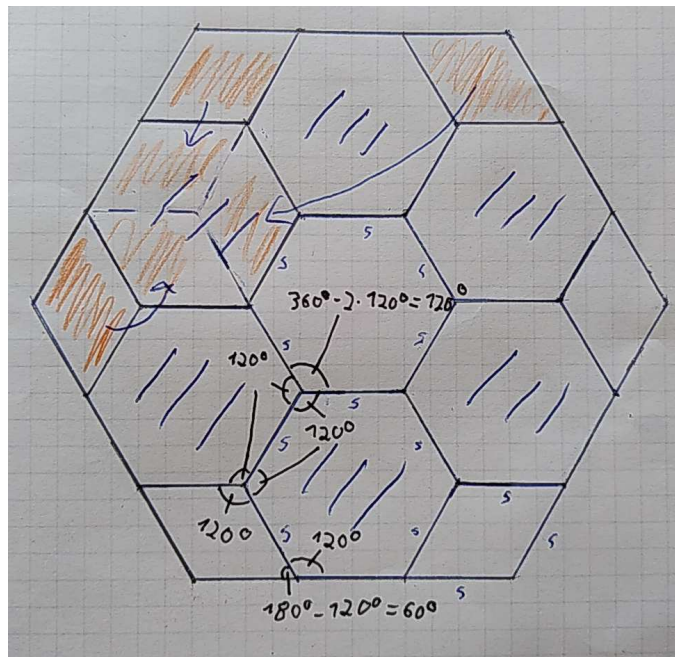 s
s
s
360°-2·120°=120°
s
s
120°
s
s
120°
s
120°
s
120°
s
s
s
180°-120°=60°
s